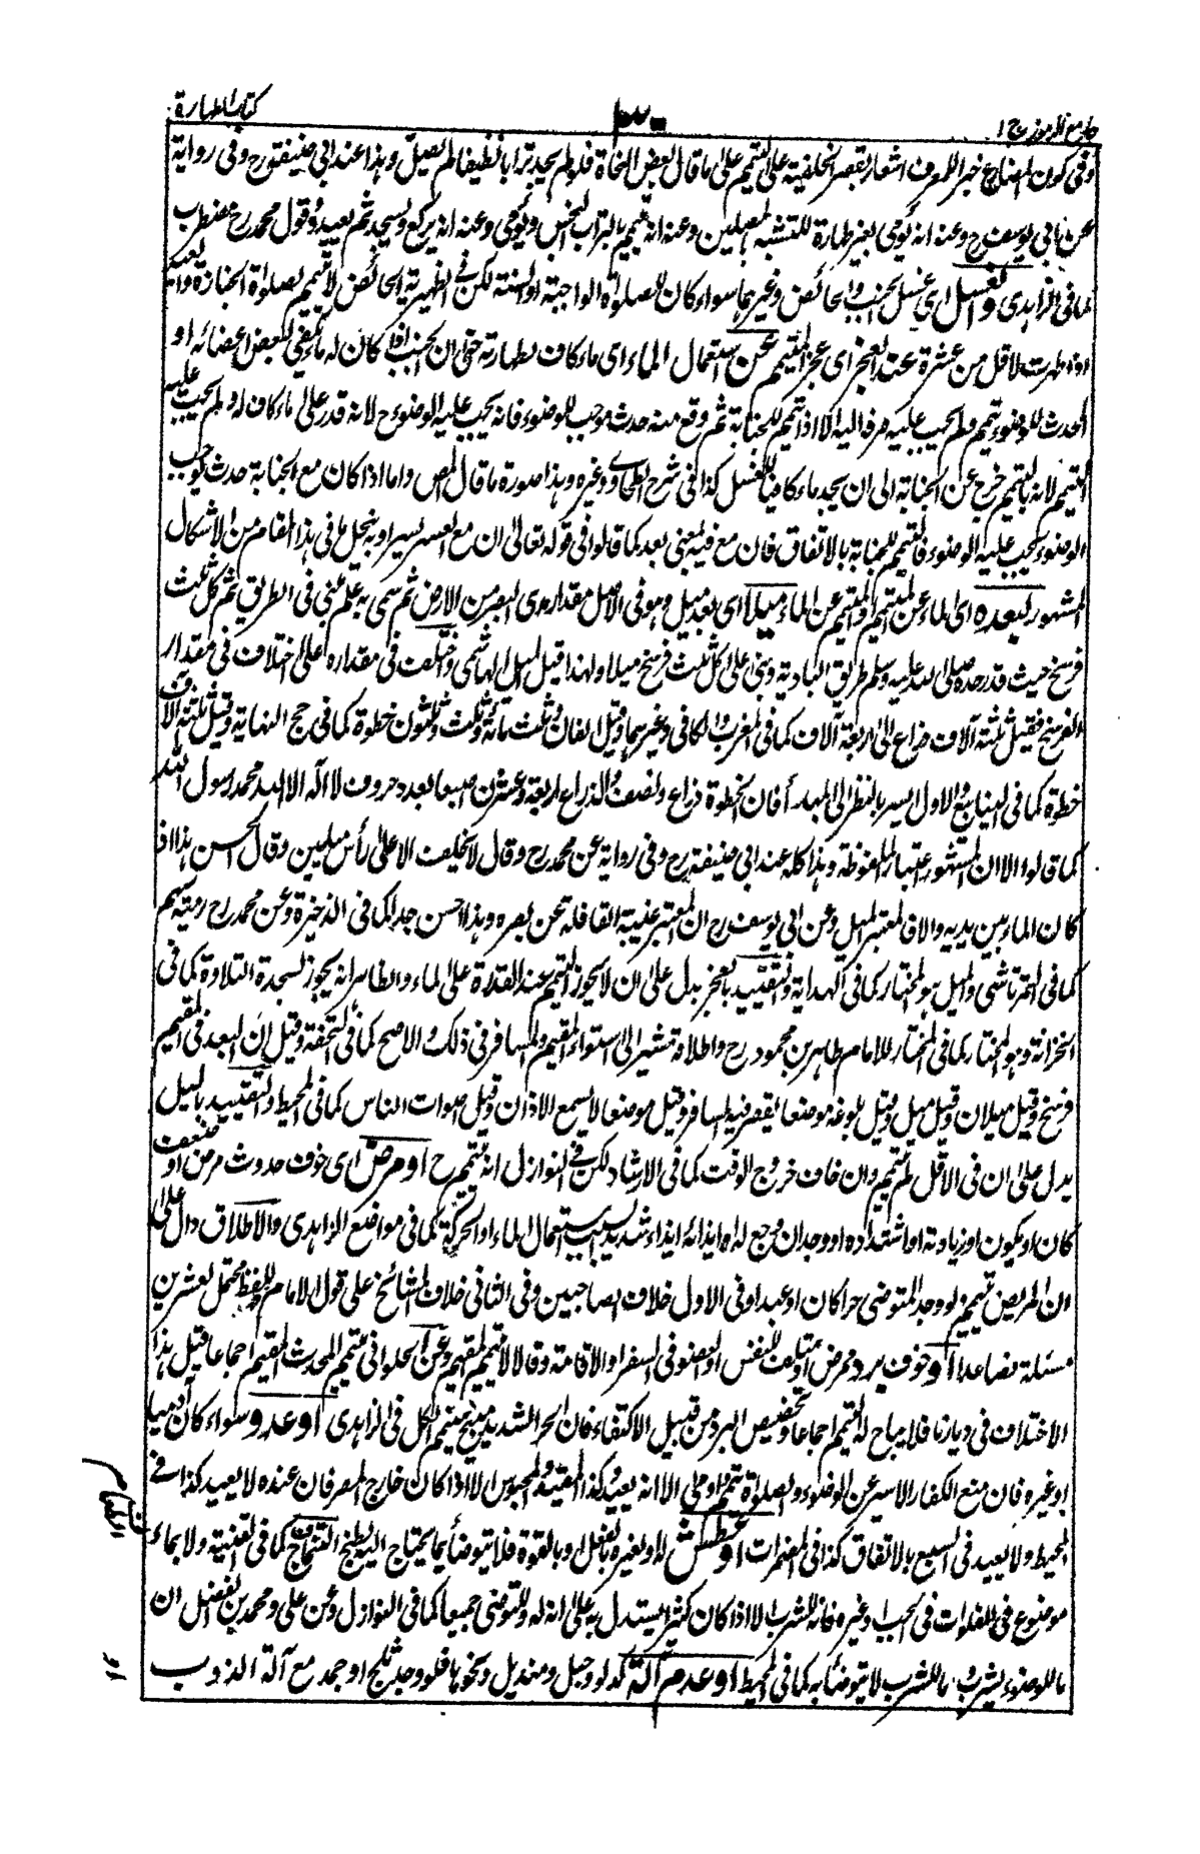 جامع الرموز ج ١
٣٠
كتاب الطهارة
وفى كون المضارع خبر الظرف اشعار بقصر الخلفية على التيمم على ما قال بعض النحاة فلو لم يجد ترابا نظيفا لم يصل وهذا عند ابى حنيفة رح وفى رواية
عن ابى يوسف رح وعنه انه يؤمى بغير طهارة للتشبه بالمصلين وعنه انه يتيمم بالتراب النجس ويؤمى وعنه انه يركع ويسجد ثم يعيد وقول محمد رح مضطرب
كما فى الزاهدى والغسل اى غسل الجنب والحائض وغيرهما سواء كان للصلوة الواجبة او السنة لكن فى الظهيرية الحائض لا تتيمم لصلوة الجنازة والعيد
اذا طهرت لاقل من عشرة عند العجز اى عجز المتيمم عن استعمال الماء اى ماء كاف لطهارته حتى ان الجنب اذا كان له ماء يكفى لبعض اعضائه او
المحدث للوضوء تيمم ولم يجب عليه صرفه اليه الا اذا تيمم للجنابة ثم وقع منه حدث موجب للوضوء فانه يجب عليه الوضوء ح لانه قدر على ماء كاف له ولم يجب عليه
التيمم لانه بالتيمم خرج عن الجنابة الى ان يجد ماء كافيا للغسل كذا فى شرح الطحاوى وغيره وهذا صورة ما قال المص واما اذا كان مع الجنابة حدث يوجب
الوضوء يجب عليه الوضوء فالتيمم للجنابة بالاتفاق فان مع فيه بمعنى بعد كما قالوا فى قوله تعالى ان مع العسر يسرا وبه ينحل ما فى هذا المقام من الاشكال
المشهور لبعده اى الماء عن المتيمم او المتيمم عن الماء ميلا اى بعد ميل وهو فى الاصل مقدار مدى البصر من الارض ثم سمى به علم بنى فى الطريق ثم كل ثلث
فرسخ حيث قدر حده صلى الله عليه وسلم طريق البادية وبنى على كل ثلث فرسخ ميلا ولهذا قيل الميل الهاشمى واختلف فى مقداره على اختلاف فى مقدار
الفرسخ فقيل ثلثة آلاف ذراع الى اربعة آلاف كما فى المغرب والكافى وغيرهما وقيل الفان وثلث مائة وثلث وثلثون خطوة كما فى حج النهاية وقيل ثلثة آلاف
خطوة كما فى الينابيع والاول ايسر بالنظر الى المبدأ فان الخطوة ذراع ونصف والذراع اربعة وعشرون اصبعا بعدد حروف لا اله الا الله محمد رسول الله
كما قالوا الا ان المشهور اعتبار الملفوظة وهذا كله عند ابى حنيفة رح وفى رواية عن محمد رح وقال لا يختلف الا على رأس ميلين وقال الحسن هذا اذا
كان الماء بين يديه والا فالمعتبر الميل وعن ابى يوسف رح ان المعتبر غيبة القافلة عن بصره وهذا احسن جدا كما فى الذخيرة وعن محمد رح رمية سهم
كما فى التمرتاشى والميل هو المختار كما فى الهداية والتقييد بالعجز يدل على ان لا يجوز التيمم عند القدرة على الماء والظاهر انه يجوز لسجدة التلاوة كما فى
الخزانة وهو المختار كما فى المختار للامام طاهر بن محمود رح واطلاقه مشير الى استواء المقيم والمسافر فى ذلك والاصح كما فى التحفة وقيل ان البعد فى المقيم
فرسخ وقيل ميلان وقيل ميل وقيل بلوغه موضعا يقصر فيه المسافر وقيل موضعا لا يسمع الاذان وقيل اصوات الناس كما فى المحيط والتقييد بالميل
يدل على ان فى الاقل لم يتيمم وان خاف خروج الوقت كما فى الارشاد لكن فى النوازل انه يتيمم ح او مرض اى خوف حدوث مرض او ضعف
كان او يكون او زيادته او اشتداده او وجدان وجع له او ايذائه ايذاء شديدا بسبب استعمال الماء او الحركة كما فى مواضع الزاهدى والاطلاق دال على
ان المريض تيمم ولو وجد المتوضى حرا كان او عبدا وفى الاول خلاف الصاحبين وفى الثانى خلاف المشائخ على قول الامام واللفظ محتمل لعشرين
مسئلة فصاعدا او خوف برد ممرض او متلف للنفس او العضو فى السفر او الاقامة وقالا لا يتيمم المقيم وعن الحلوانى تيمم المحدث المقيم اجماعا قيل هذا
الاختلاف فى ديارنا فلا يباح له التيمم اجماعا وتخصيص البرد من قبيل الاكتفاء فان الحر الشديد مبيح تيمم الكل فى الزاهدى او عدو سواء كان آدميا
او غيره فان منع الكفار الاسير عن الوضوء والصلوة تيمم واومى الا انه يعيد وكذا المقيد والمحبوس الا اذا كان خارج المصر فان عنده لا يعيد كذا فى
المحيط ولا يعيد فى السبع بالاتفاق كذا فى المضمرات او عطش له او لغيره بالفعل او بالقوة فلا يتوضأ بما يحتاج اليه لطبخ كما فى القنية ولا بماء
موضوع فى الفلوات فى الحب او غيره فانه للشرب الا اذا كان كثيرا يستدل به على انه له وللتوضى جميعا كما فى النوازل وعن على ومحمد بن الفضل ان
ما للوضوء يشرب وما للشرب لا يتوضأ به كما فى المحيط او عدم آلة كدلو وحبل ومنديل ونحوها فلو وجد ثلج او جمد مع آلة الذوب